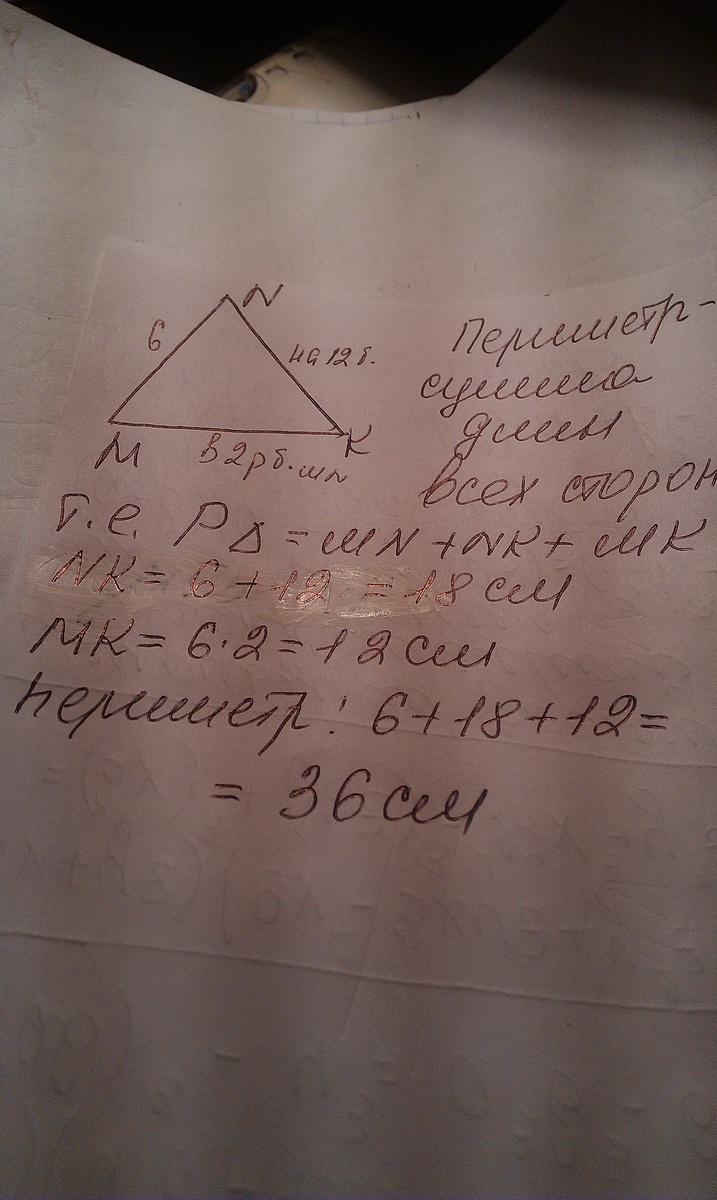 N
6
на 12 б.
M
K
в 2 р б. MN
Периметр-
сумма
длин
всех сторон
т.е. P∆ = MN + NK + MK
NK = 6 + 12 = 18 см
MK = 6·2 = 12 см
Периметр: 6 + 18 + 12 =
= 36 см